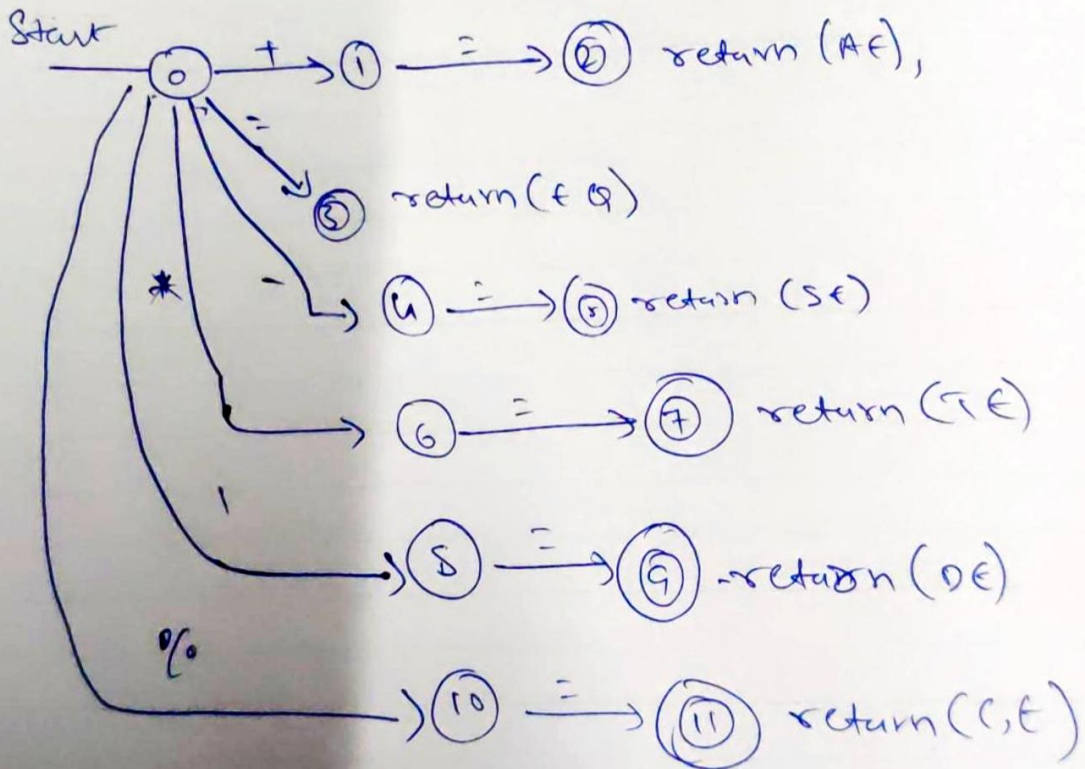 Start
0 + 1 = 2 return (AE),
= 3 return (EQ)
- 4 = 5 return (SE)
* 6 = 7 return (TE)
\ 8 = 9 return (DE)
% 10 = 11 return (C,E)